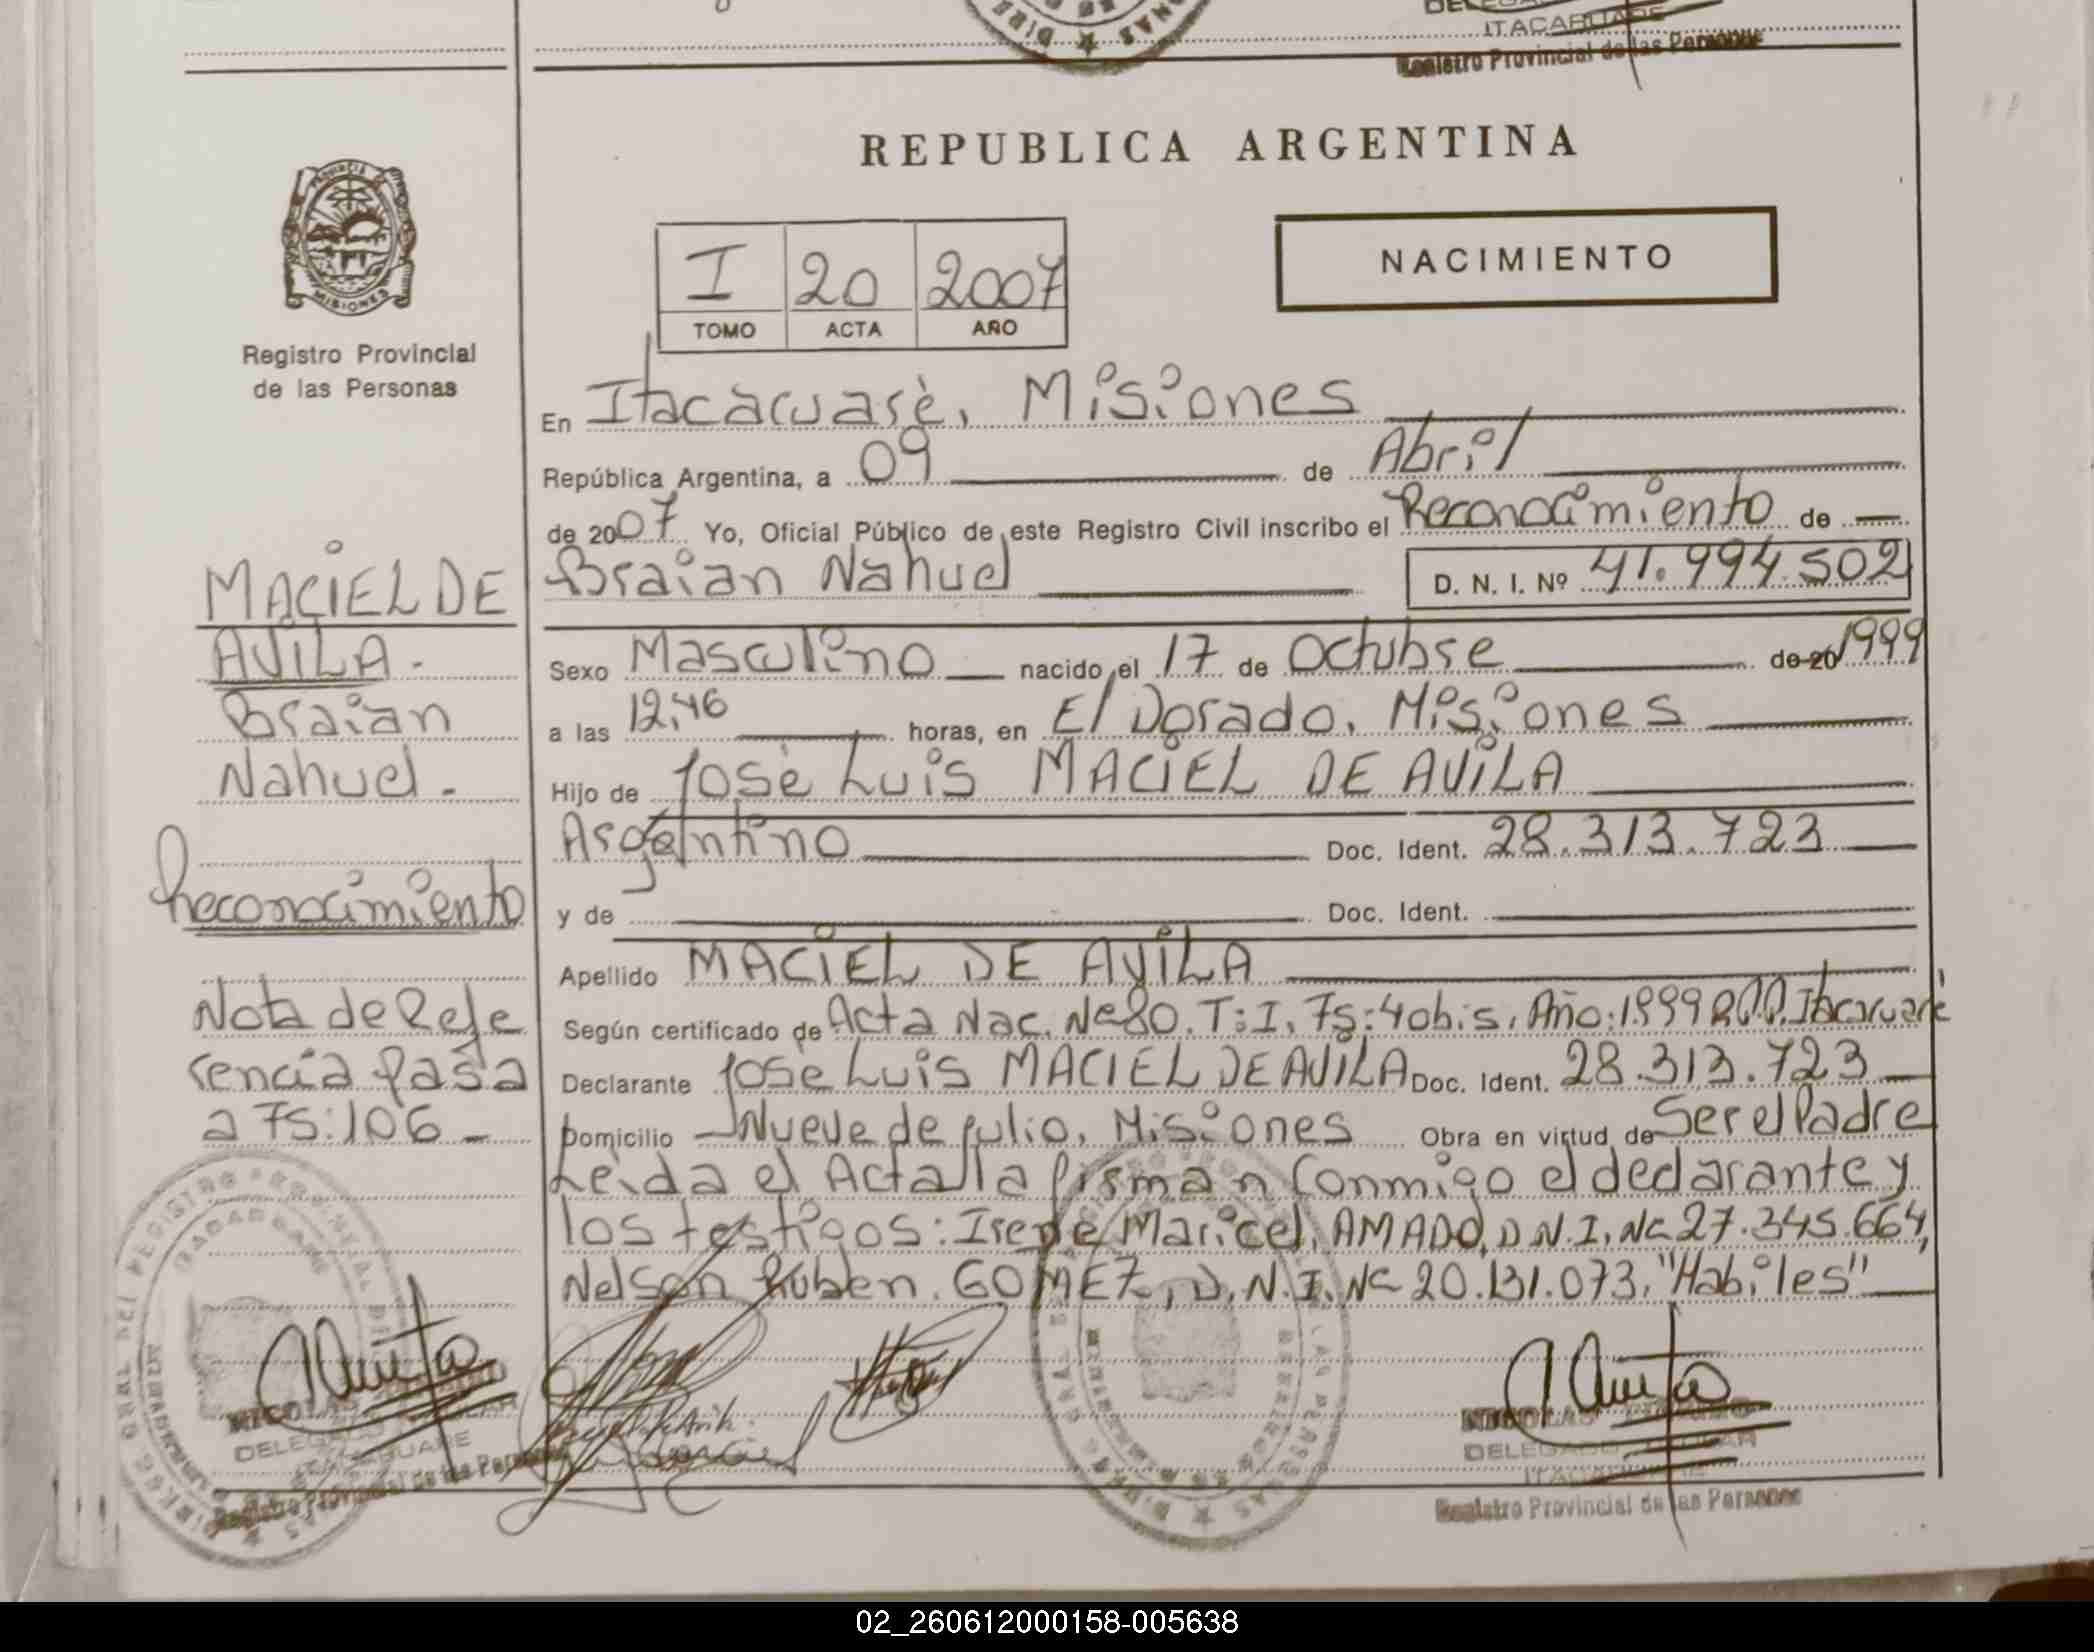 ITACARUARE
Registro Provincial de las Personas
REPUBLICA ARGENTINA
MISIONES
Registro Provincial
de las Personas
I 20 2007
TOMO ACTA AÑO
NACIMIENTO
En Itacacuarè, Misiones
República Argentina, a 09 de Abril
de 2007 Yo, Oficial Público de este Registro Civil inscribo el Reconocimiento de
Braian Nahuel D. N. I. Nº 41.994.502
Sexo Masculino nacido el 17 de Octubre de 20 1999
a las 12,46 horas, en El Dorado, Misiones
Hijo de Josè Luis MACIEL DE AVILA
Argentino Doc. Ident. 28.313.723
y de Doc. Ident.
Apellido MACIEL DE AVILA
Según certificado de Acta Nac. Nº 80. T: I, Fs: 40bis, Año: 1999 Itacaruarè
Declarante Jose Luis MACIEL DE AVILA Doc. Ident. 28.313.723
Domicilio Nueve de Julio, Misiones Obra en virtud de Ser el Padre
Leida el Acta la firman Conmigo el declarante y
los testigos: Irene Maricel, AMADO, D.N.I, Nº 27.345.664,
Nelson Ruben. GOMEZ, D.N.I. Nº 20.131.073, "Habiles"
MACIEL DE
AVILA.
Braian
Nahuel.
Reconocimiento
Nota de Refe
rencia Pasa
a Fs: 106
NICOLAS
DELEGADO TITULAR
ITACARUARE
Registro Provincial de las Personas
NICOLAS
DELEGADO TITULAR
ITACARUARE
Registro Provincial de las Personas
02_260612000158-005638